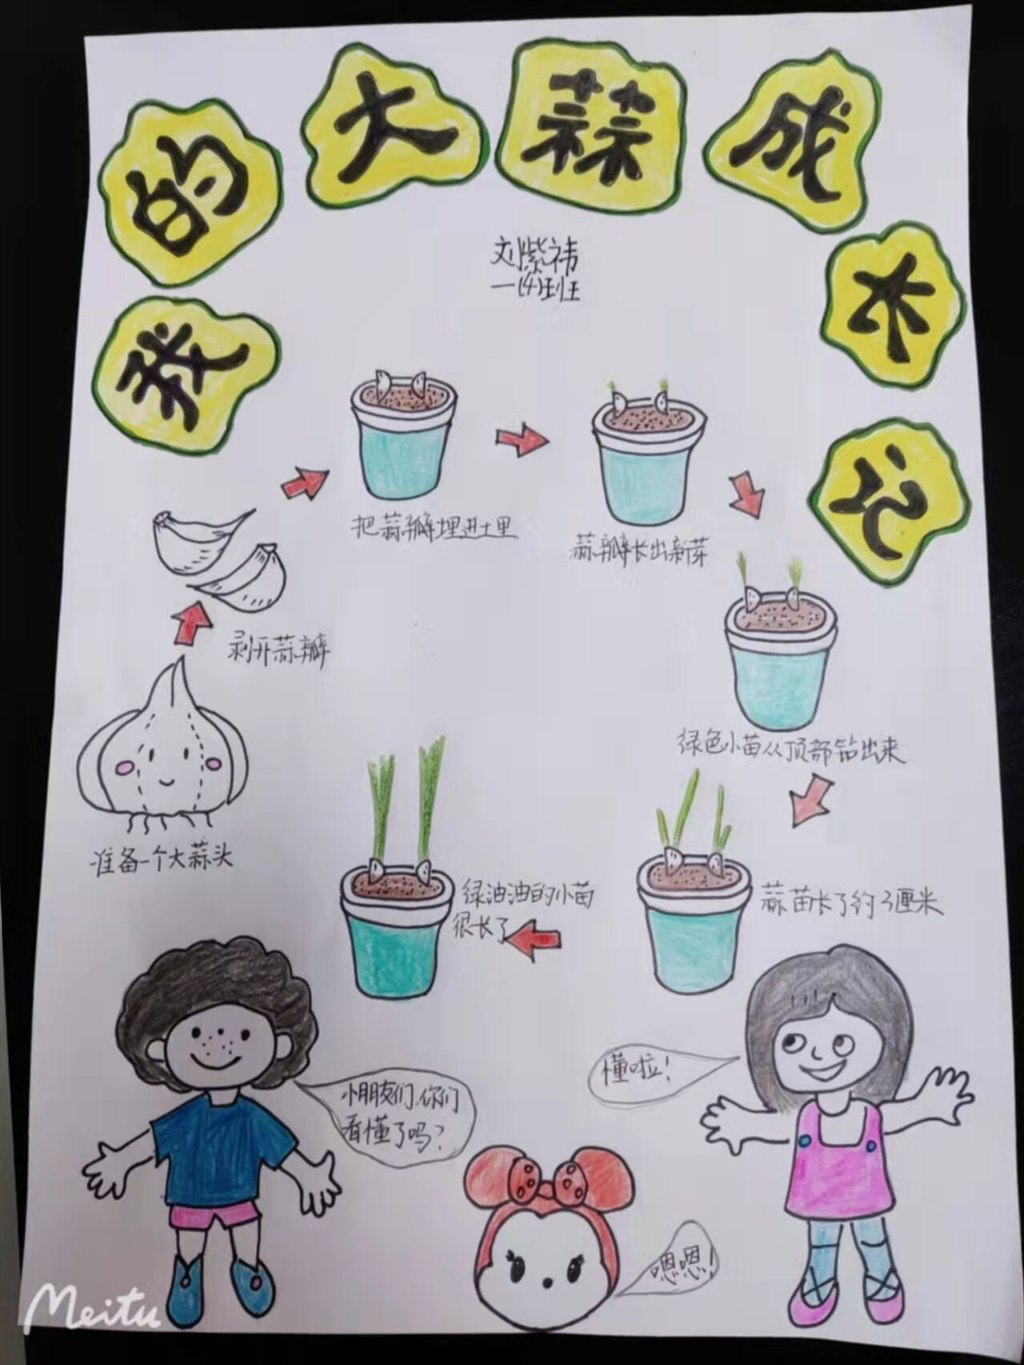 我的大蒜成长记
刘紫祎
一(4)班
准备一个大蒜头
剥开蒜瓣
把蒜瓣埋进土里
蒜瓣长出新芽
绿色小苗从顶部钻出来
蒜苗长了约3厘米
绿油油的小苗
很长了
小朋友们,你们
看懂了吗?
懂啦!
嗯嗯!
Meitu